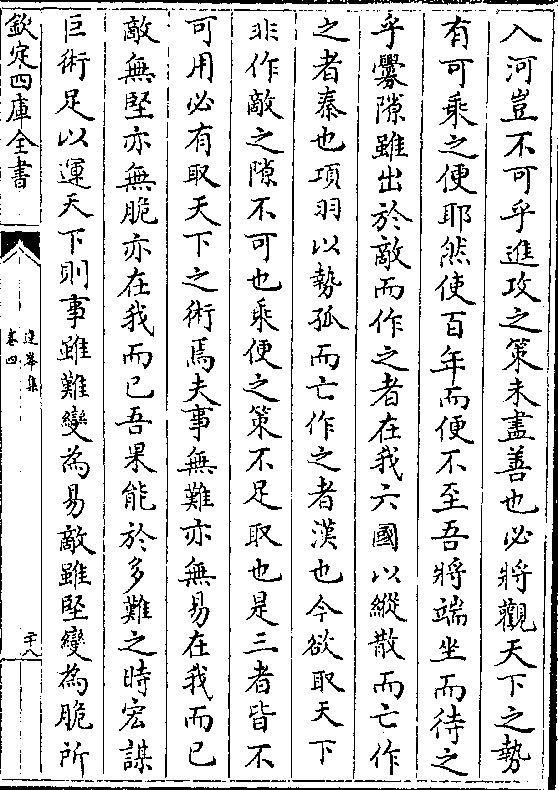 入河豈不可乎進攻之策未盡善也必將觀天下之勢
有可乘之便耶然使百年而便不至吾將端坐而待之
乎釁隙雖出於敵而作之者在我六國以縱散而亡作
之者秦也項羽以勢孤而亡作之者漢也今欲取天下
非作敵之隙不可也乘便之策不足取也是三者皆不
可用必有取天下之術焉夫事無難亦無易在我而已
敵無堅亦無脆亦在我而已吾果能於多難之時宏謀
巨術足以運天下則事雖難變為易敵雖堅變為脆所
欽定四庫全書
蓮峯集
卷四
二十八